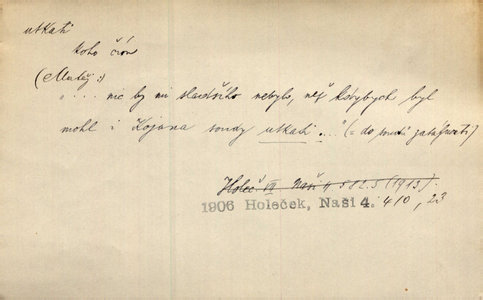 utkati
koho čím
(Mudrý:)
„ ... nic by mi sladšího nebylo, než kdybych byl
mohl i Kojana soudy utkati ...." (= do soudů zatáhnouti)
Holeč. VII Naši 4 582.5 (1913).
1906 Holeček, Naši 4. 410, 23